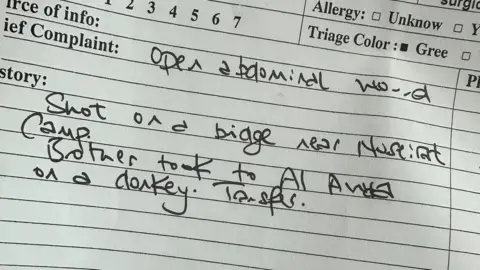 rce of info: 1 2 3 4 5 6 7
Allergy: □ Unknow □ Y
ief Complaint: Open abdominal wound
Triage Color: ■ Gree □
story:
Shot on a bigge near Nuseirat
Camp.
Bother took to Al Awda
on a donkey. Transfer.